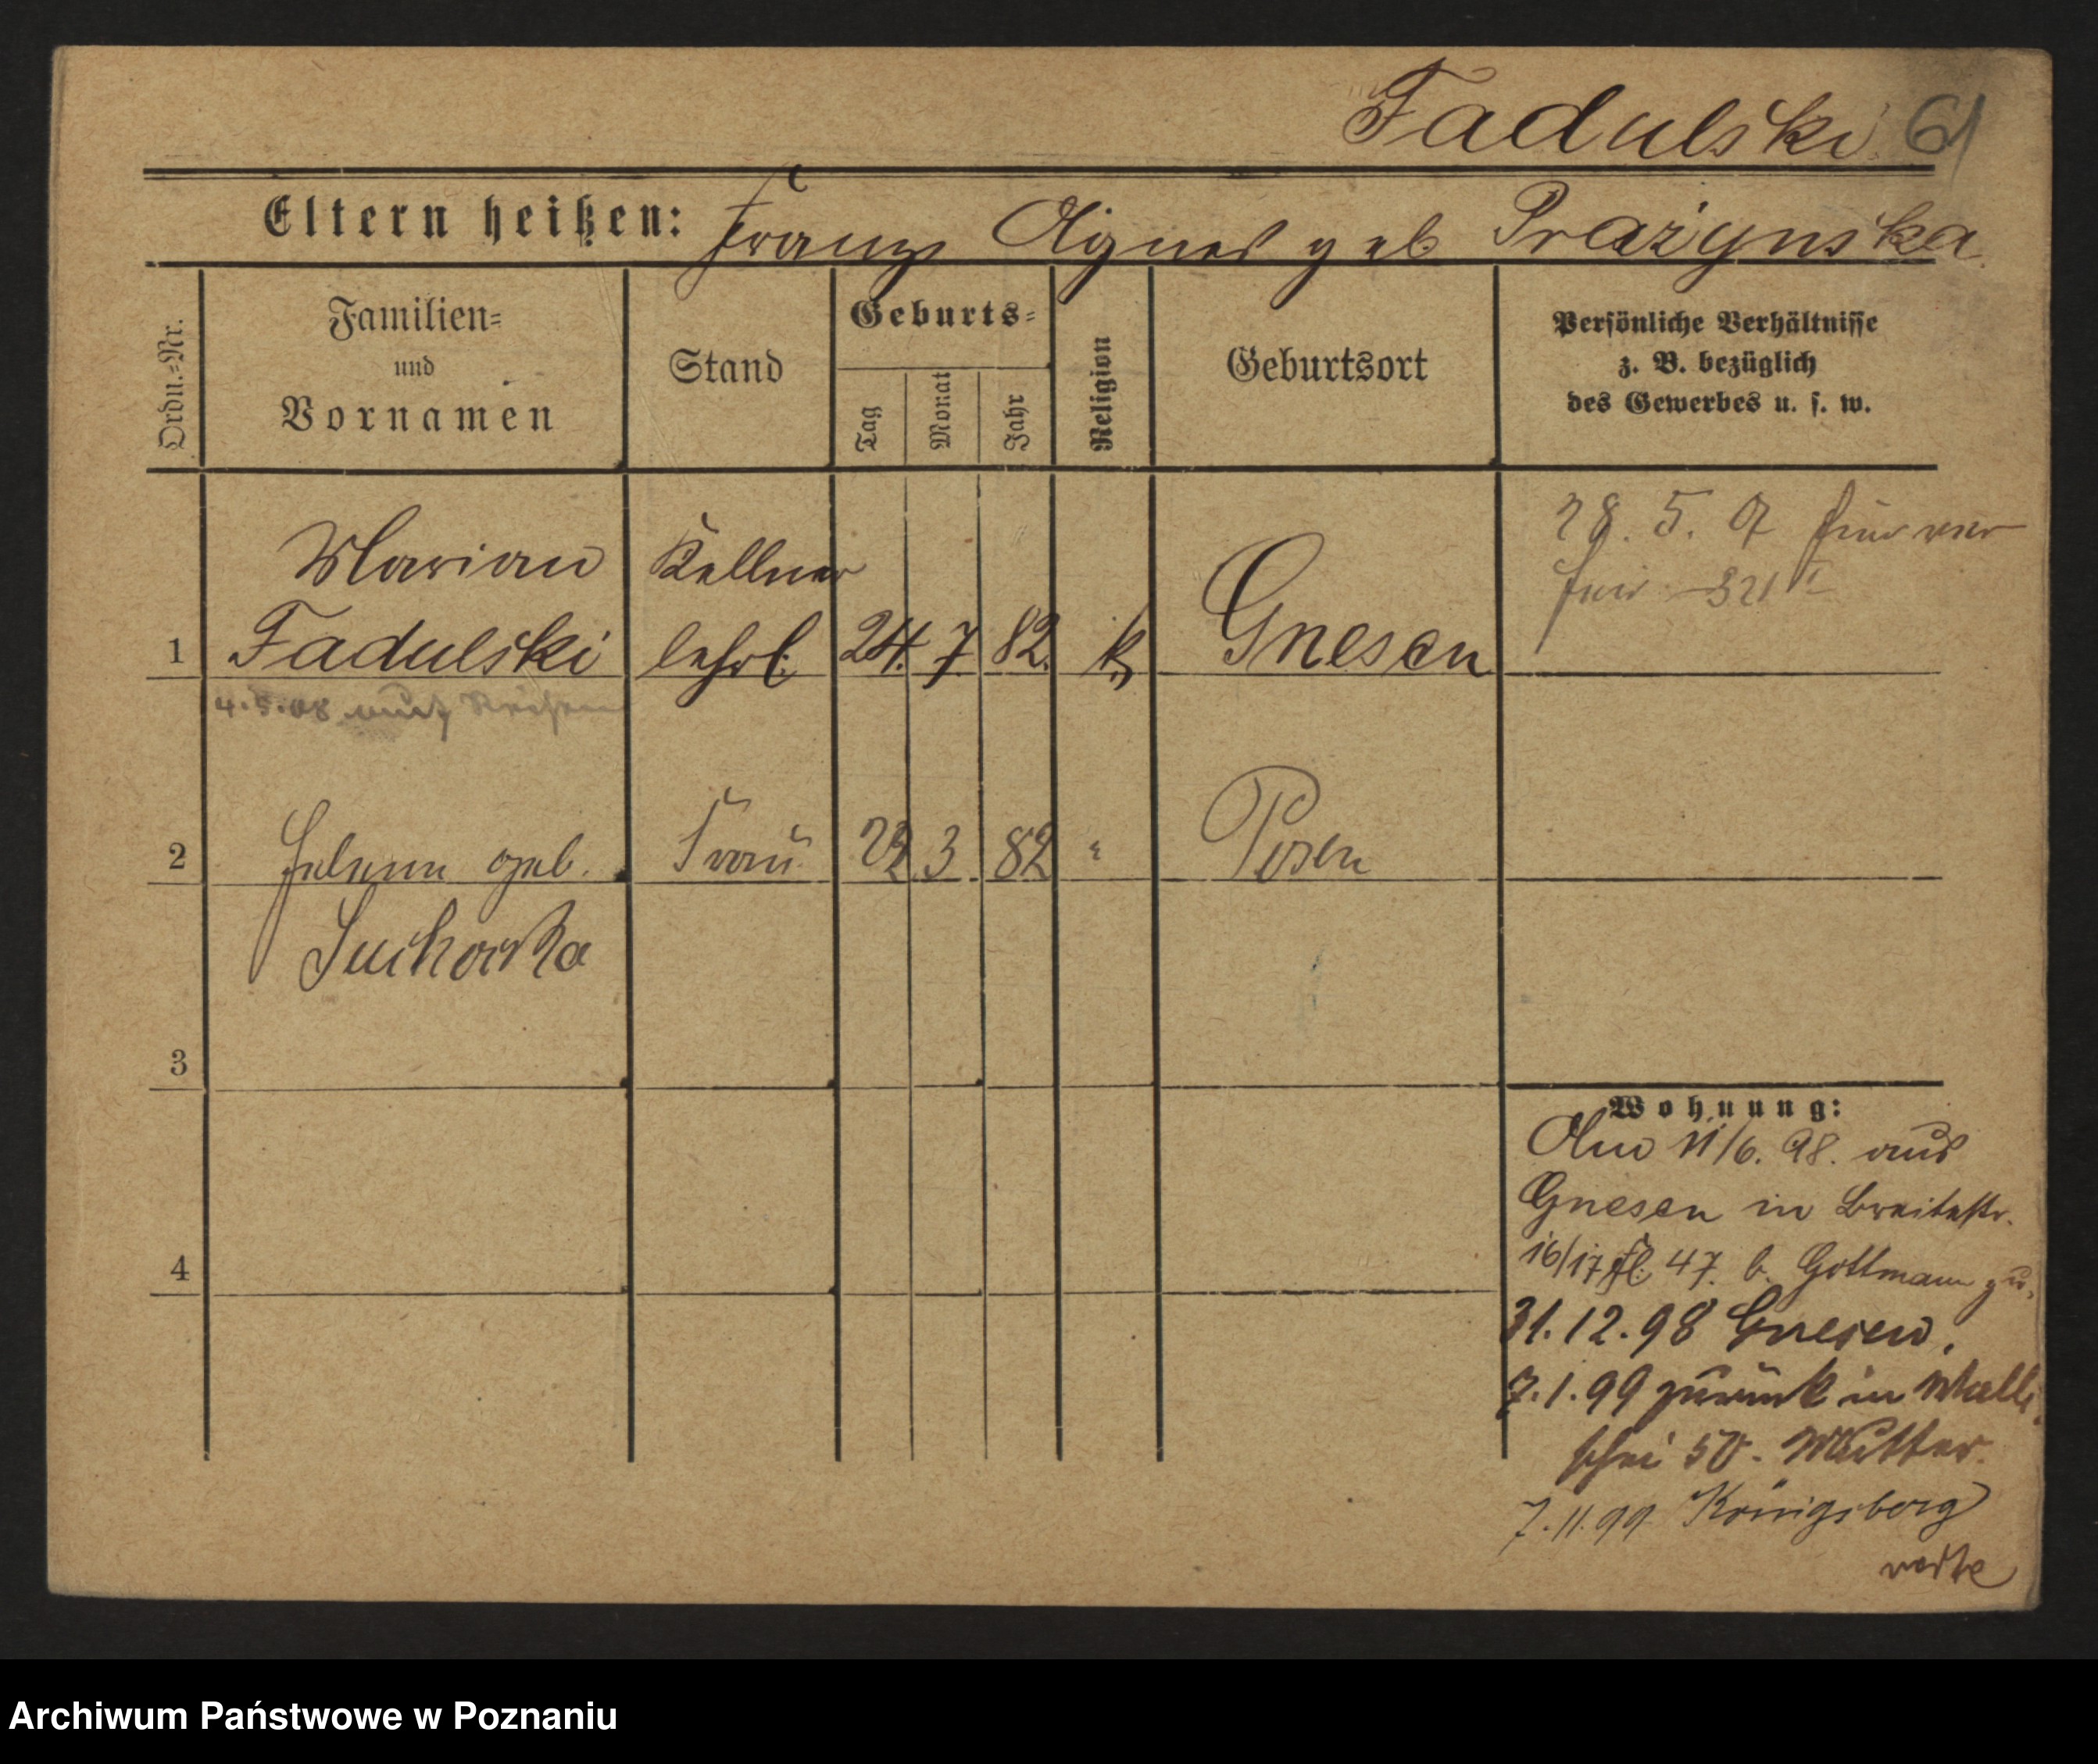 Fadulski 61
Eltern heißen: Franz Agnes geb Prażynska
Ordn.-Nr.
Familien-
und
Vornamen
Stand
Geburts-
Tag
Monat
Jahr
Religion
Geburtsort
Persönliche Verhältnisse
z. B. bezüglich
des Gewerbes u. s. w.
28. 5. 07
321
Marian Kellner
1 Fadulski lehrl. 24. 7 82. k Gnesen
4.5.08 auf Reisen
2 Helene geb. Frau 22 3 82 " Posen
Suchorska
3
4
Wohnung:
Am 11/6. 98. aus
Gnesen in Breitestr.
16/17 47. b. Gottmann zu.
31.12.98 Gnesen.
7.1.99 zurück in Walli
schei 50. Mutter.
7.11.99 Königsberg
verte
Archiwum Państwowe w Poznaniu